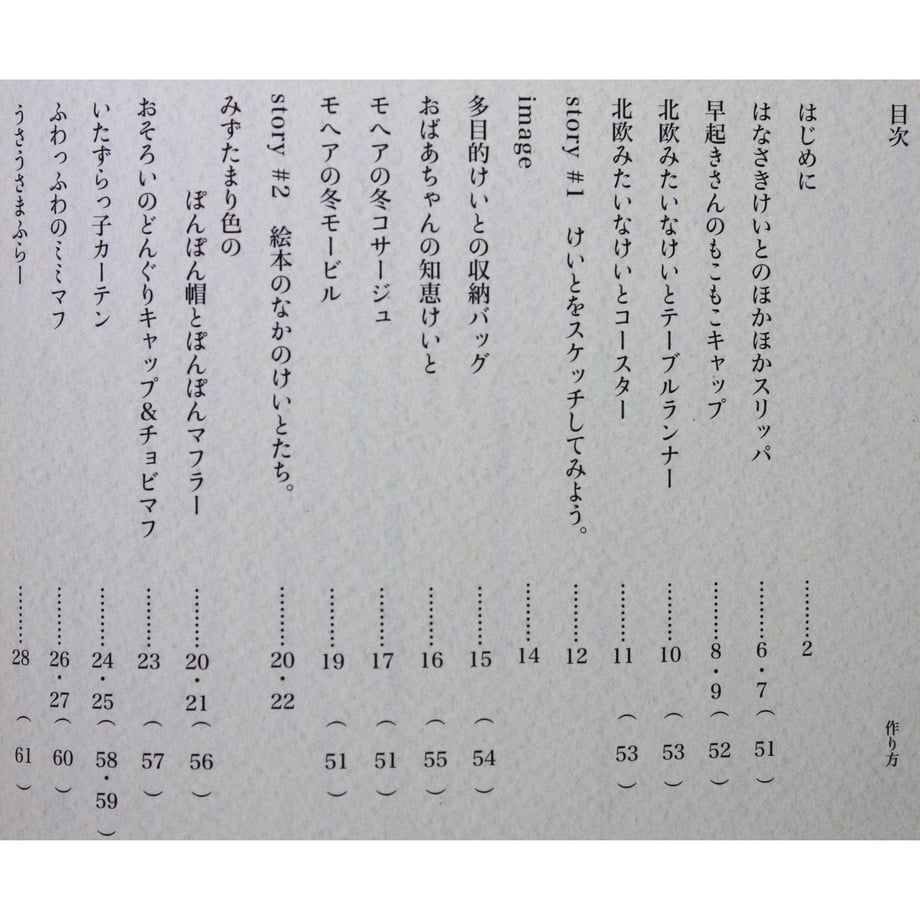 目次
作り方
はじめに………2
はなさきけいとのほかほかスリッパ………6・7（51）
早起きさんのもこもこキャップ………8・9（52）
北欧みたいなけいとテーブルランナー………10（53）
北欧みたいなけいとコースター………11（53）
story #1　けいとをスケッチしてみよう。………12
image………14
多目的けいとの収納バッグ………15（54）
おばあちゃんの知恵けいと………16（55）
モヘアの冬コサージュ………17（51）
モヘアの冬モービル………19（51）
story #2　絵本のなかのけいとたち。………20・22
みずたまり色の
ぽんぽん帽とぽんぽんマフラー………20・21（56）
おそろいのどんぐりキャップ＆チョビマフ………23（57）
いたずらっ子カーテン………24・25（58・59）
ふわっふわのミミマフ………26・27（60）
うさうさまふらー………28（61）